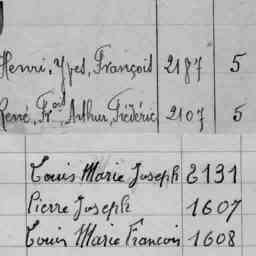 Henri, Yves, François 2187 5
René, Fr.ord, Arthur, Frédéric 2107 5
Louis Marie Joseph 2131
Pierre Joseph 1607
Louis Marie Francois 1608